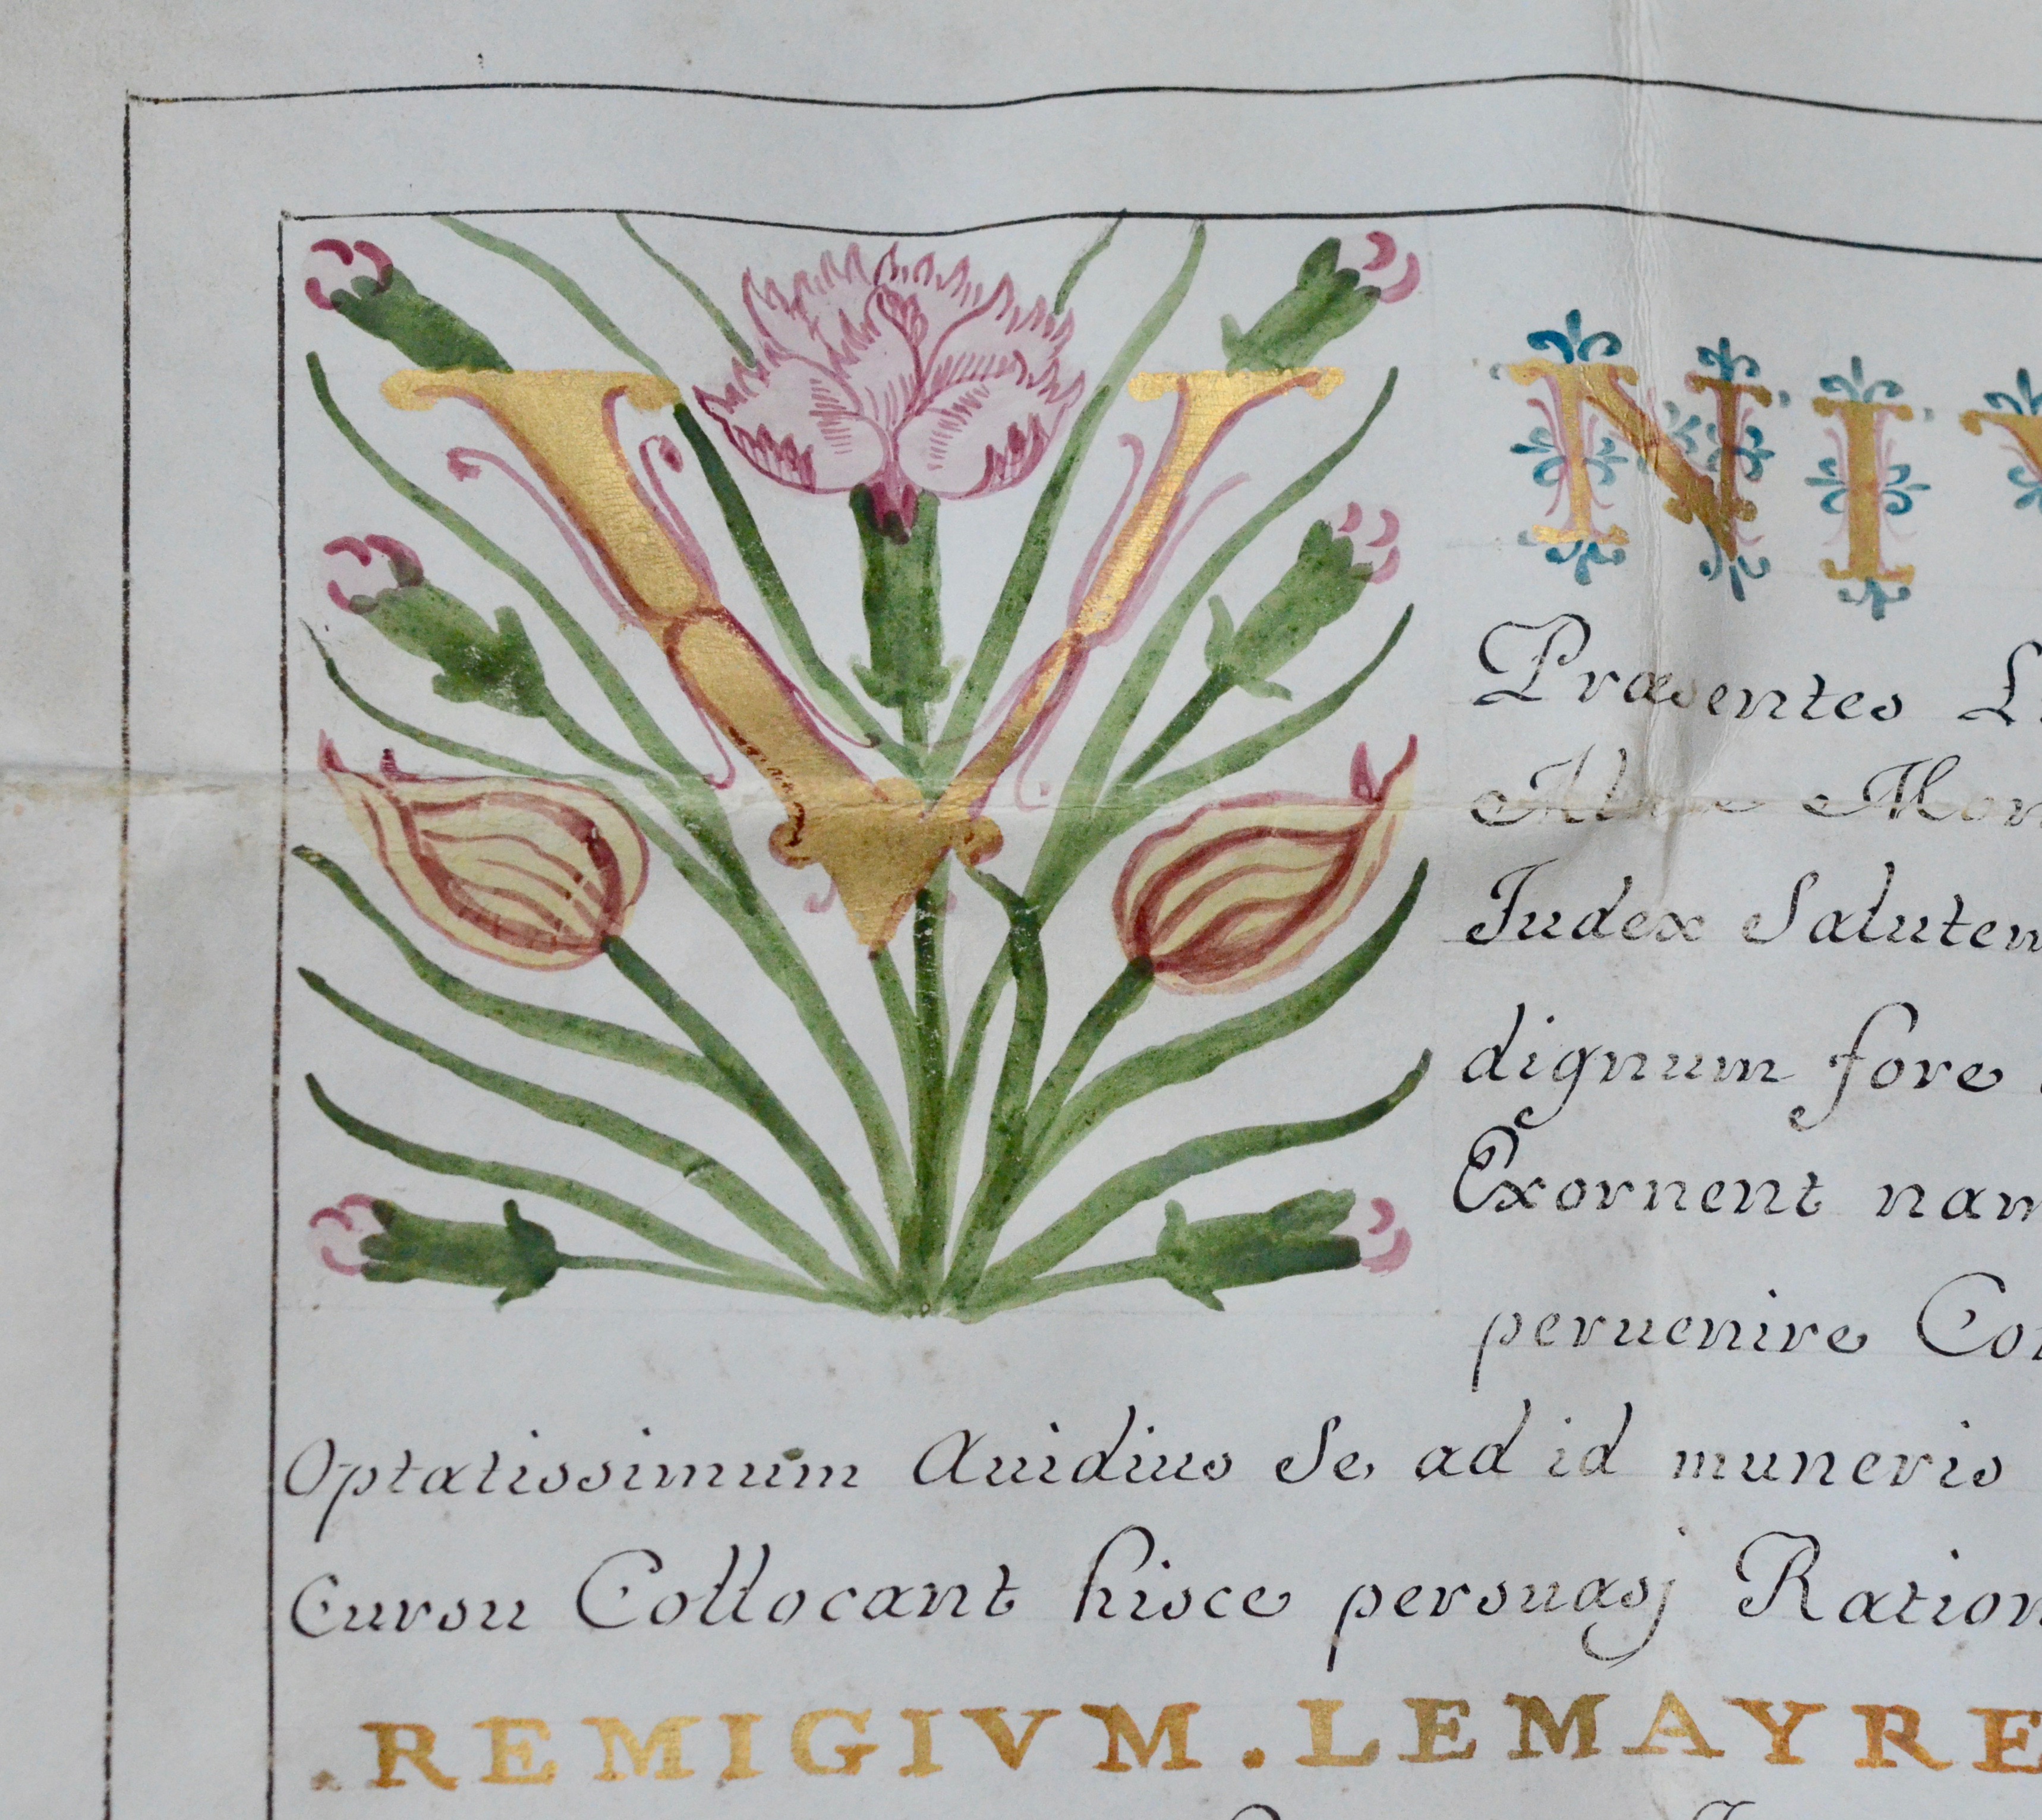 V NIV
Præsentes L
Almæ Mon
Iudex Salutem
dignum fore
Exornent nam
peruenire Co
Optatissimum Auidius Se ad id muneris
Cursu Collocant hisce persuasj Ration
.REMIGIVM.LEMAYRE